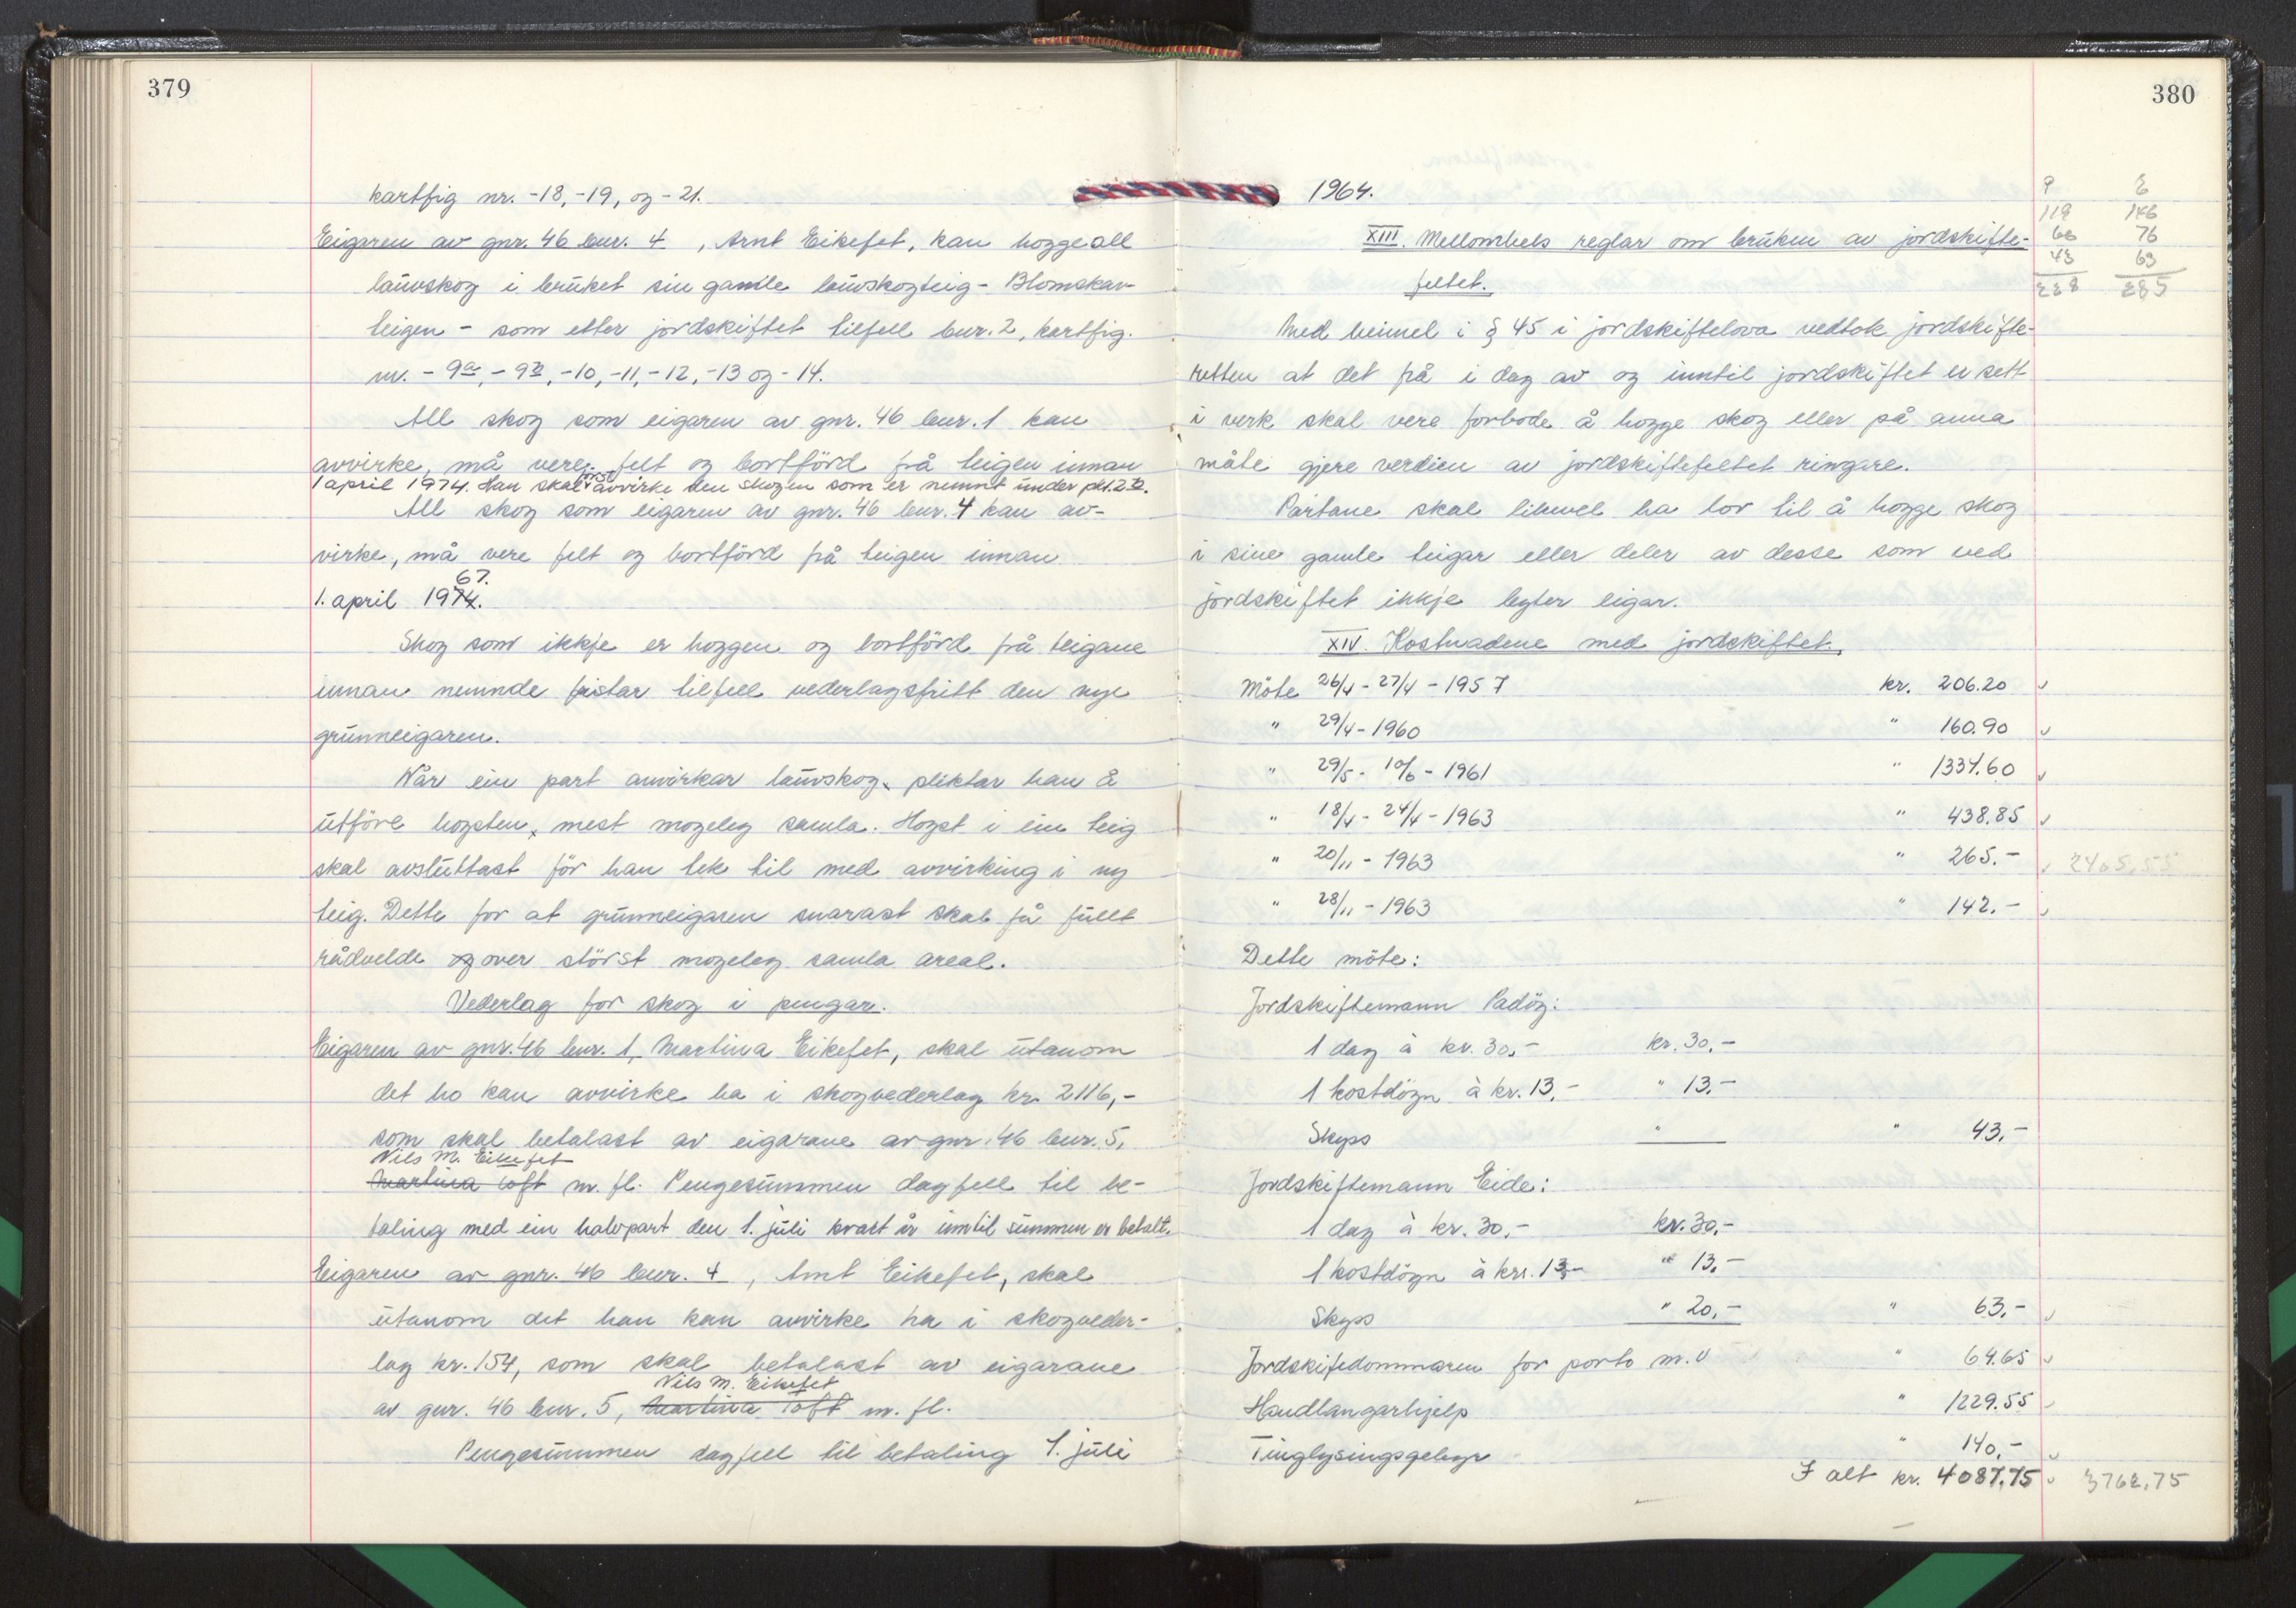 379
kartfig nr. -18, -19, og -21.
Eigaren av gnr. 46 bnr. 4, Arnt Eikefet, kan hogge all
lauvskog i bruket sin gamle lauvskogteig - Blomskar-
teigen - som etter jordskiftet tilfell bnr. 2, kartfig.
nr. - 9a, - 9b, -10, -11, -12, -13 og -14.
All skog som eigaren av gnr. 46 bnr. 1 kan
avvirke, må vere felt og bortförd frå teigen innan
1 april 1974. Han skal först avvirke den skogen som er nemnt under pkt. 2 b.
All skog som eigaren av gnr. 46 bnr. 4 kan av-
virke, må vere felt og bortförd frå teigen innan
67.
1. april 1974.
Skog som ikkje er hoggen og bortförd frå teigane
innan nemnde fristar tilfell vederlagsfritt den nye
grunneigaren.
Når ein part avvirkar lauvskog, pliktar han å
utföre hogsten, mest mogeleg samla. Hogst i ein teig
skal avsluttast för han tek til med avvirking i ny
teig. Dette for at grunneigaren snarast skal få fullt
rådvelde og over störst mogeleg samla areal.
Vederlag for skog i pengar.
Eigaren av gnr. 46 bnr. 1, Martina Eikefet, skal utanom
det ho kan avvirke ha i skogvederlag kr. 2116,-
som skal betalast av eigarane av gnr. 46 bnr. 5,
Nils M. Eikefet
Martina Toft m. fl. Pengesummen dagfell til be-
taling med ein halvpart den 1. juli kvart år inntil summen er betalt.
Eigaren av gnr. 46 bnr. 4, Arnt Eikefet, skal
utanom det han kan avvirke ha i skogveder-
lag kr. 154, som skal betalast av eigarane
Nils M. Eikefet
av gnr. 46 bnr. 5, Martina Toft m. fl.
Pengesummen dagfell til betaling 1. juli
380
1964.
P E
119 146
66 76
43 63
228 285
XIII. Mellombels reglar om bruken av jordskifte-
feltet.
Med heimel i § 45 i jordskiftelova vedtok jordskifte-
retten at det frå i dag av og inntil jordskiftet er sett
i verk skal vere forbode å hogge skog eller på anna
måte gjere verdien av jordskiftefeltet ringare.
Partane skal likevel ha lov til å hogge skog
i sine gamle teigar eller deler av desse som ved
jordskiftet ikkje byter eigar.
XIV. Kostnadene med jordskiftet.
Möte 26/4 - 27/4 - 1957 kr. 206.20
" 29/4 - 1960 " 160.90
" 29/5 - 10/6 - 1961 " 1334.60
" 18/4 - 24/4 - 1963 " 438.85
" 20/11 - 1963 " 265.- 2405,55
" 28/11 - 1963 " 142.-
Dette möte:
Jordskiftemann Padög:
1 dag à kr. 30,- kr. 30,-
1 kostdögn à kr. 13,- " 13,-
Skyss " — " 43,-
Jordskiftemann Eide:
1 dag à kr. 30,- kr. 30,-
1 kostdögn à kr. 13,- " 13,-
Skyss " 20,- " 63,-
Jordskiftedommaren for porto m.v " 64.65
Handlangarhjelp " 1229.55
Tinglysingsgebyr " 140,-
I alt kr. 4087,75 3762,75